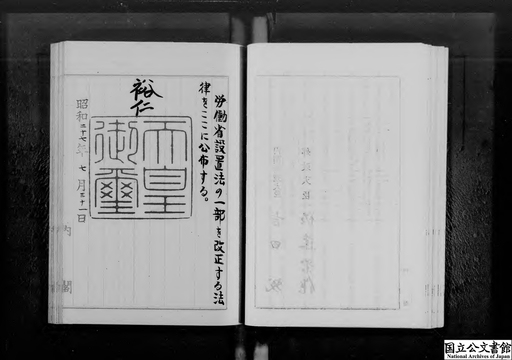 労働省設置法の一部を改正する法
律をここに公布する。
裕仁
天皇
御璽
昭和二十七年七月三十一日
内閣
国立公文書館
National Archives of Japan